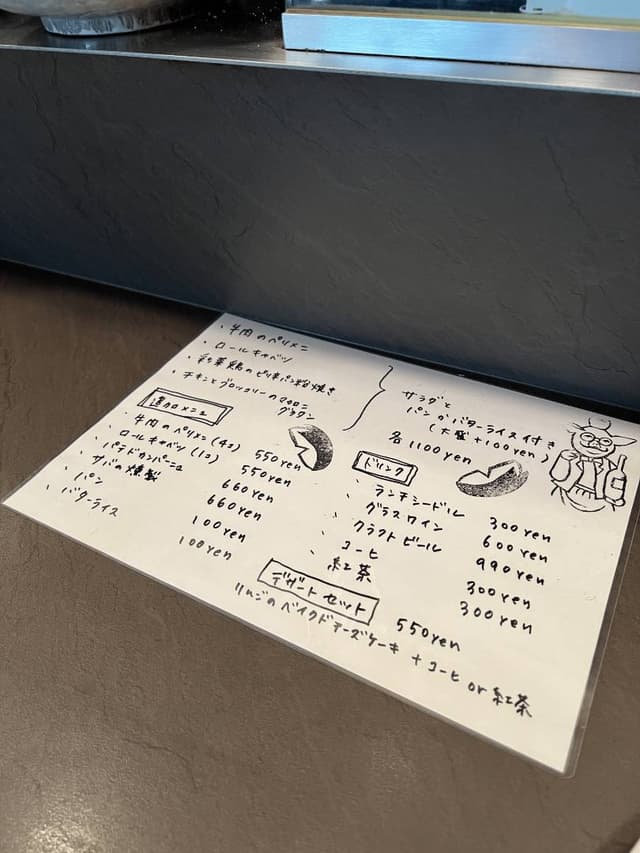 ・牛肉のペリメニ
・ロールキャベツ
・彩り葉鶏のピリ辛パン粉焼き
・チキンとブロッコリーのマカロニ
グラタン
サラダと
パンかバターライス付き
(大盛+100yen)
各1100yen
追加メニュー
・牛肉のペリメニ(4コ) 550yen
・ロールキャベツ(1コ) 550yen
・パテドカンパーニュ 660yen
・サバの燻製 660yen
・パン 100yen
・バターライス 100yen
ドリンク
・ランチシードル 300yen
・グラスワイン 600yen
・クラフトビール 990yen
・コーヒ 300yen
・紅茶 300yen
デザートセット 550yen
りんごのベイクドチーズケーキ + コーヒ or 紅茶